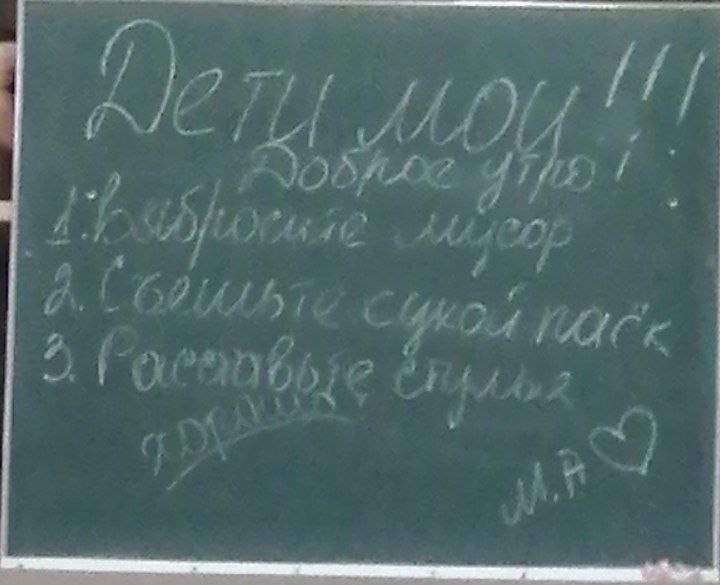 Дети мои!!!
Доброе утро!
1. Выбросите мусор
2. Съешьте сухой паёк
3. Расставьте стулья
хорошо
М.А